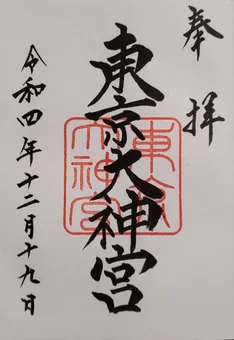 奉拝
東京大神宮
東京大神宮
令和四年十二月十九日